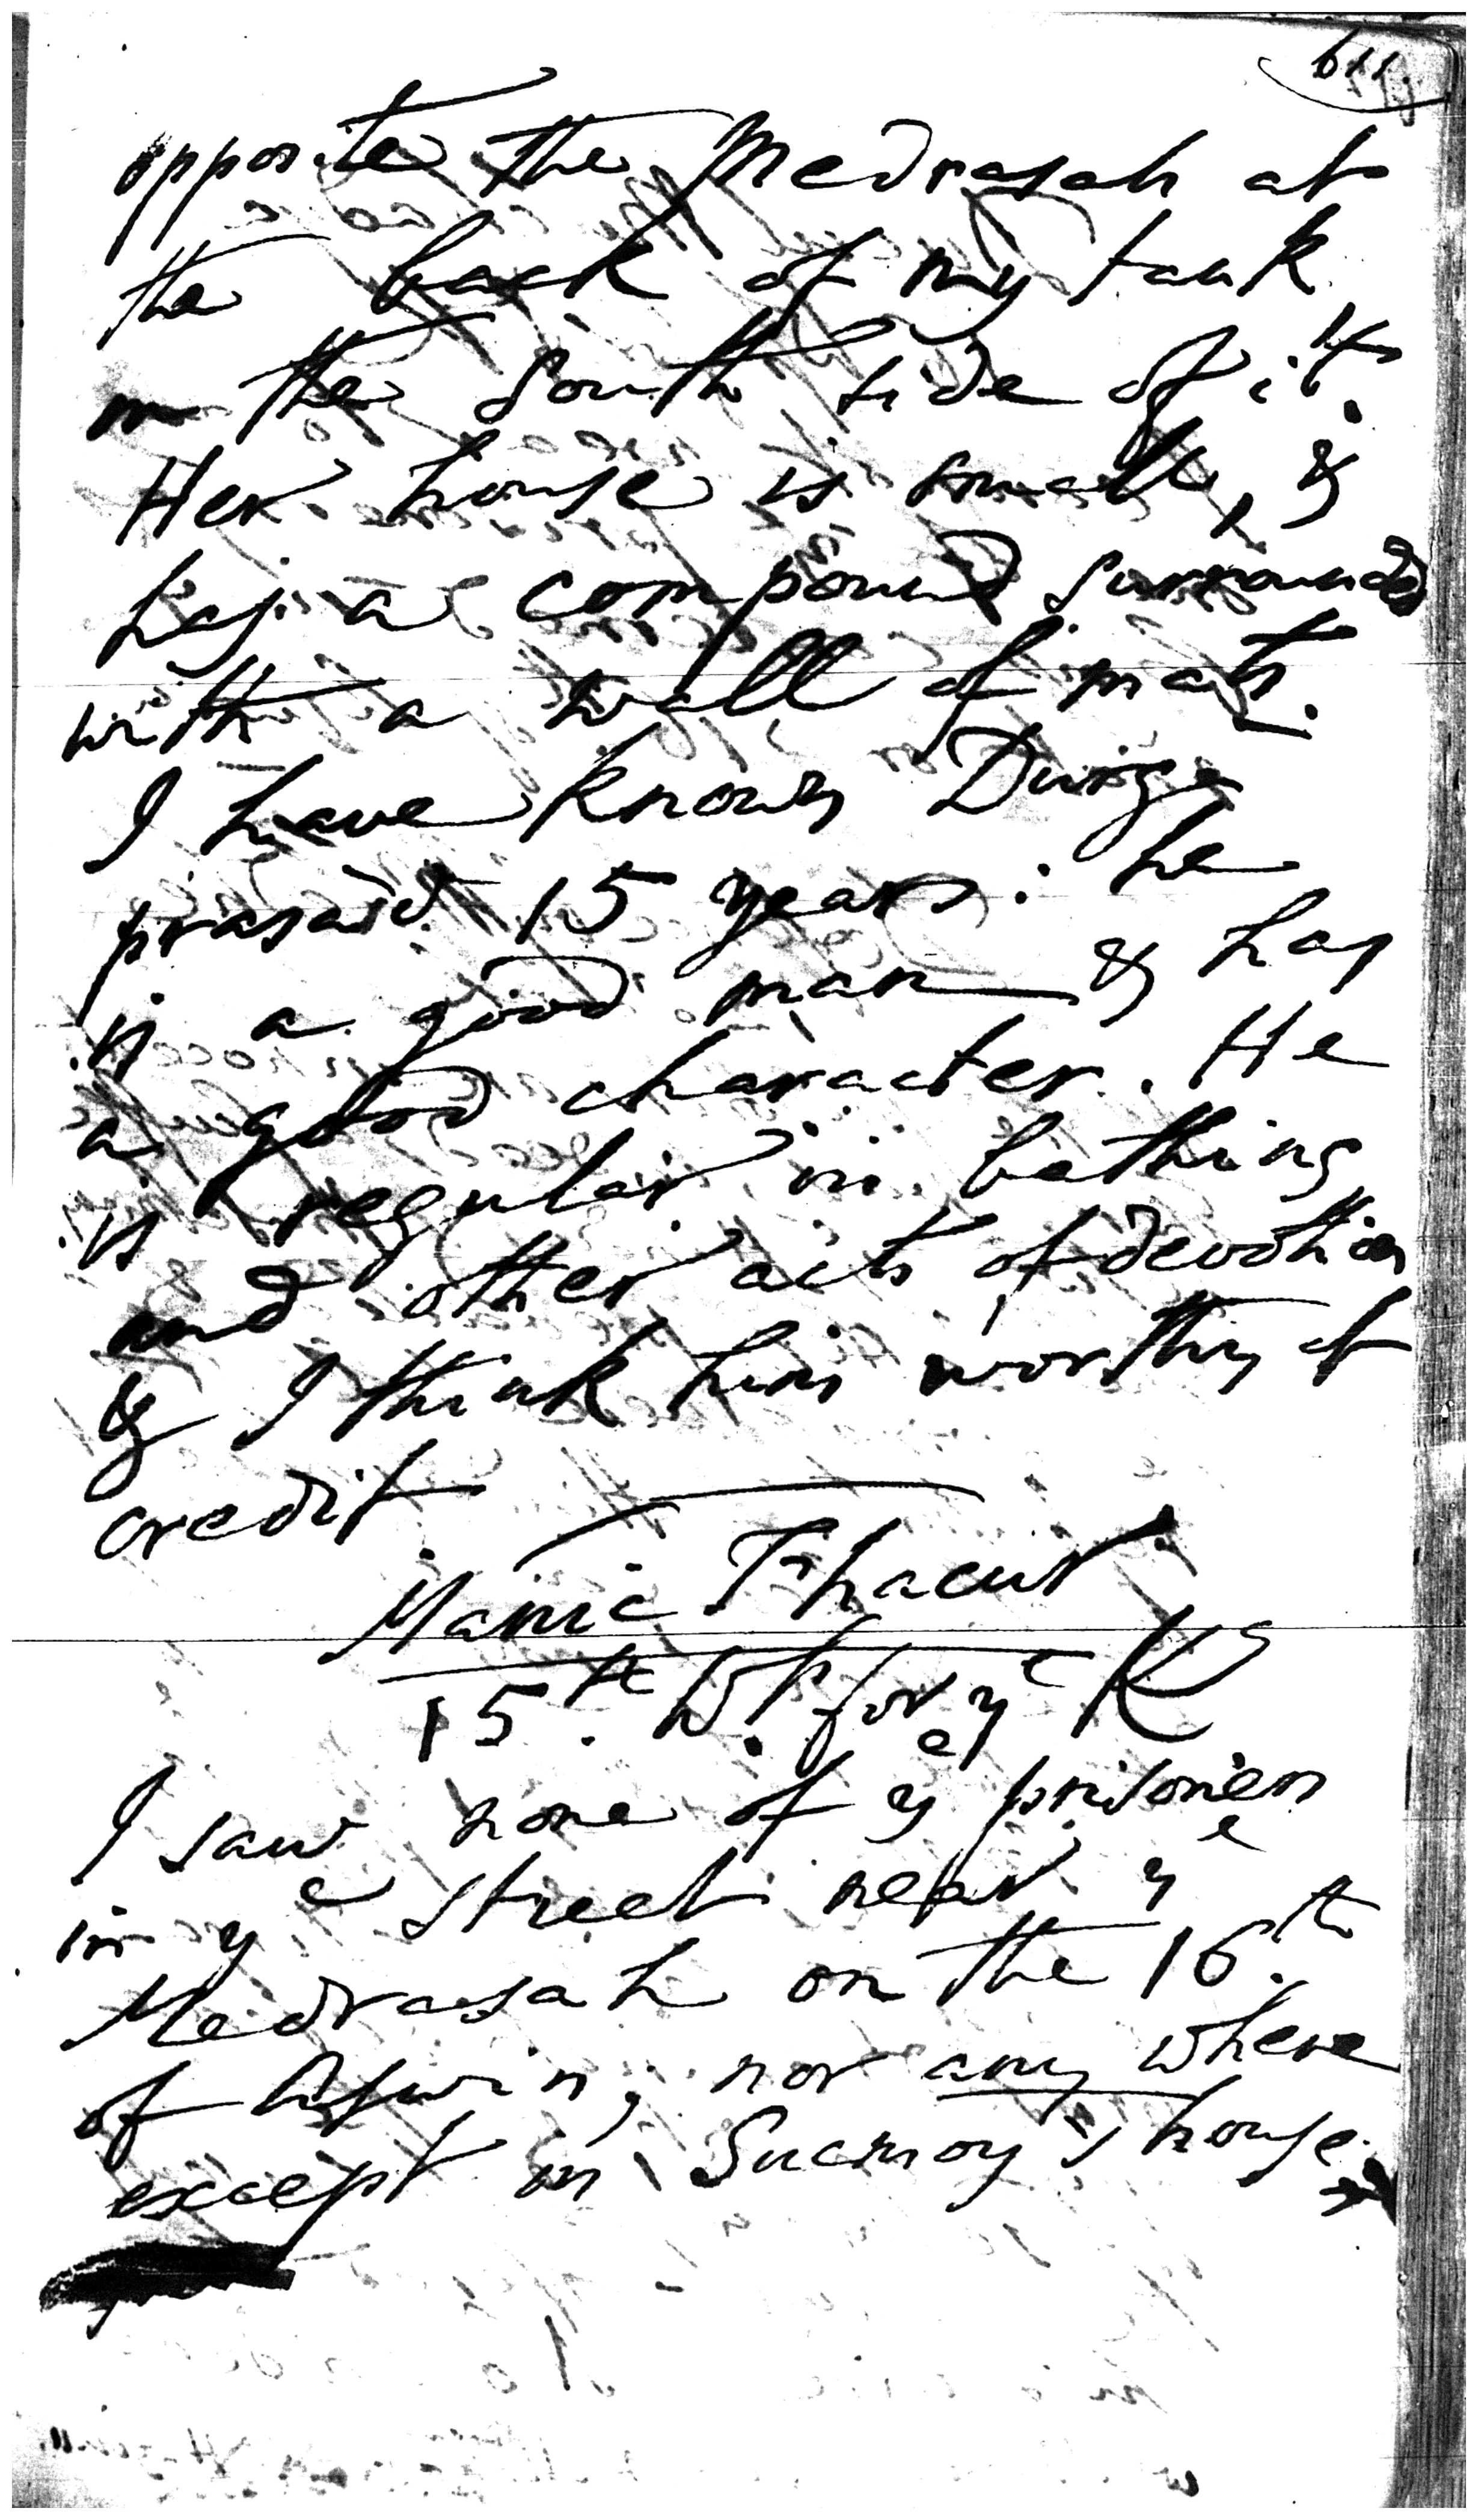 611.
opposite the Medrasah at
the back of my tank
on the South side of it.
Her house is small, &
has a compound surrounded
with a wall of mats.
I have known Durga
prasad 15 years: he
is a good man & has
a good character. He
is regular in bathing
and other acts of devotion
& I think him worthy of
credit
Manic Thacur
15th. W. for ye K
I saw none of ye prisoners
in ye street near ye
Medrasah on the 16th
of Aswin, nor any where
except in Sucmoy's house.